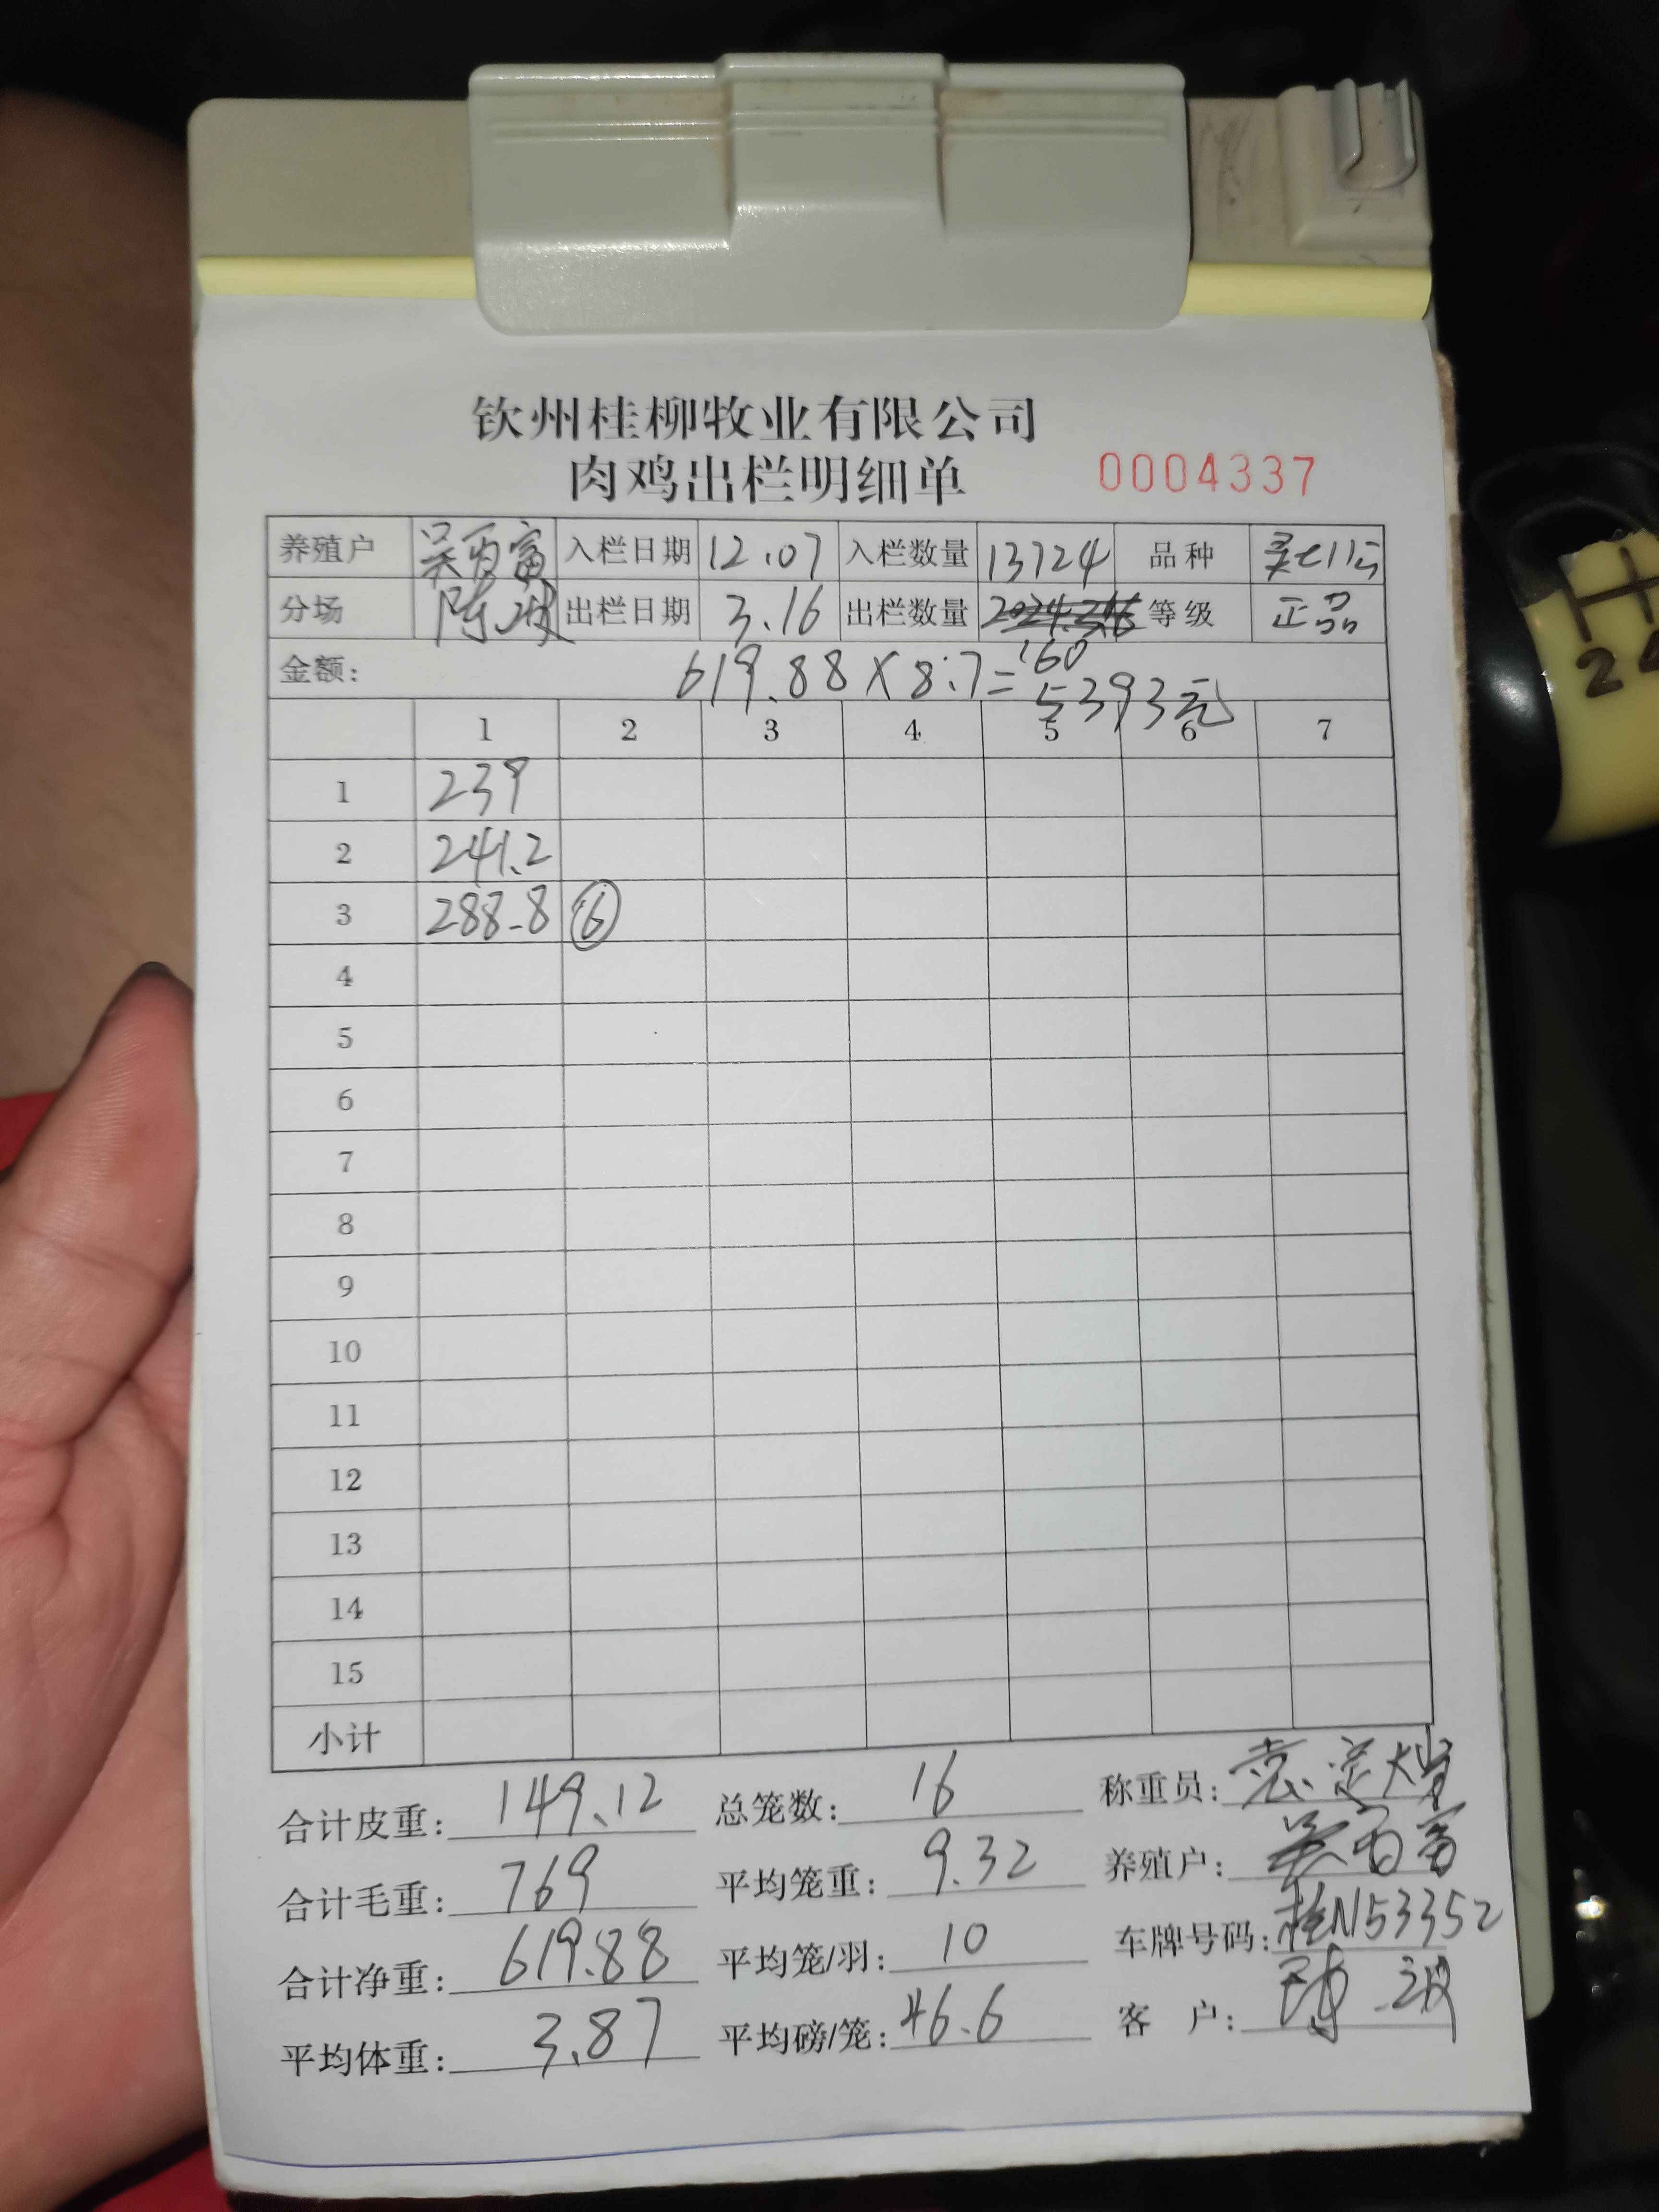 钦州桂柳牧业有限公司
肉鸡出栏明细单 0004337
养殖户 吴百富 入栏日期 12.07 入栏数量 13724 品种
分场 陈波 出栏日期 3.16 出栏数量 160 等级 正品
金额: 619.88×8.7=5393元
1 2 3 4 5 6 7
1 239
2 241.2
3 288.8 ⑥
4
5
6
7
8
9
10
11
12
13
14
15
小计
合计皮重: 149.12 总笼数: 16 称重员:
合计毛重: 769 平均笼重: 9.32 养殖户: 吴百富
合计净重: 619.88 平均笼/羽: 10 车牌号码: 桂N53352
平均体重: 3.87 平均磅/笼: 46.6 客 户: 陈波
2 4